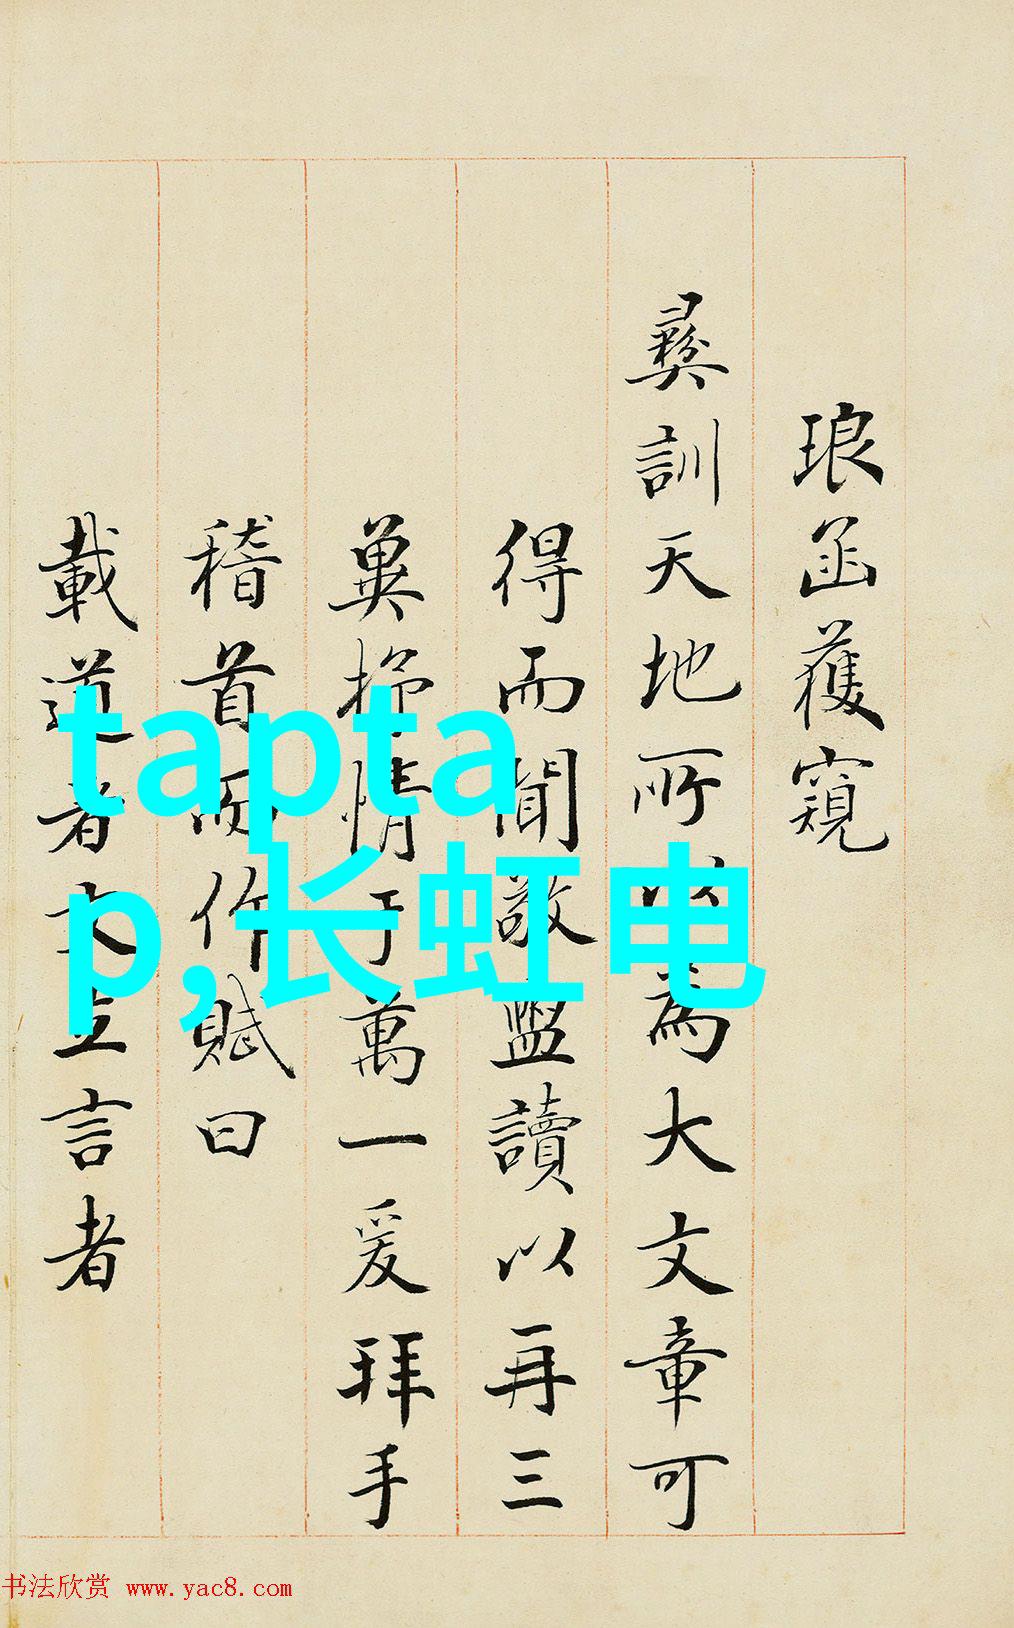 琅函獲窺
彝訓天地所以為大文章可
得而聞敬盥讀以再三
冀抒情于萬一爰拜手
稽首而作賦曰
載道者文立言者
tapta
p,长虹电
书法欣赏 www.yac8.com